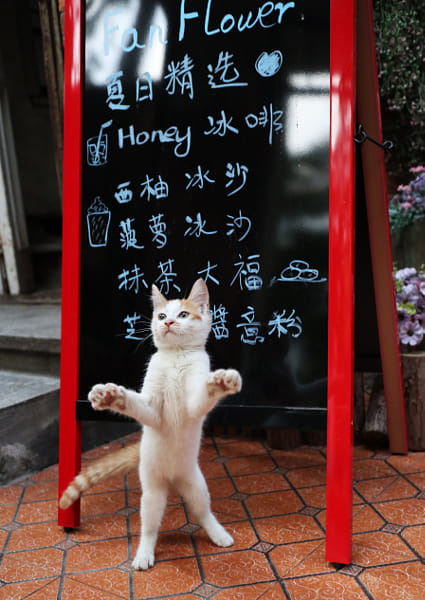 Fan Flower
夏日精选
Honey 冰啡
西柚冰沙
菠萝冰沙
抹茶大福
芝 酱意粉